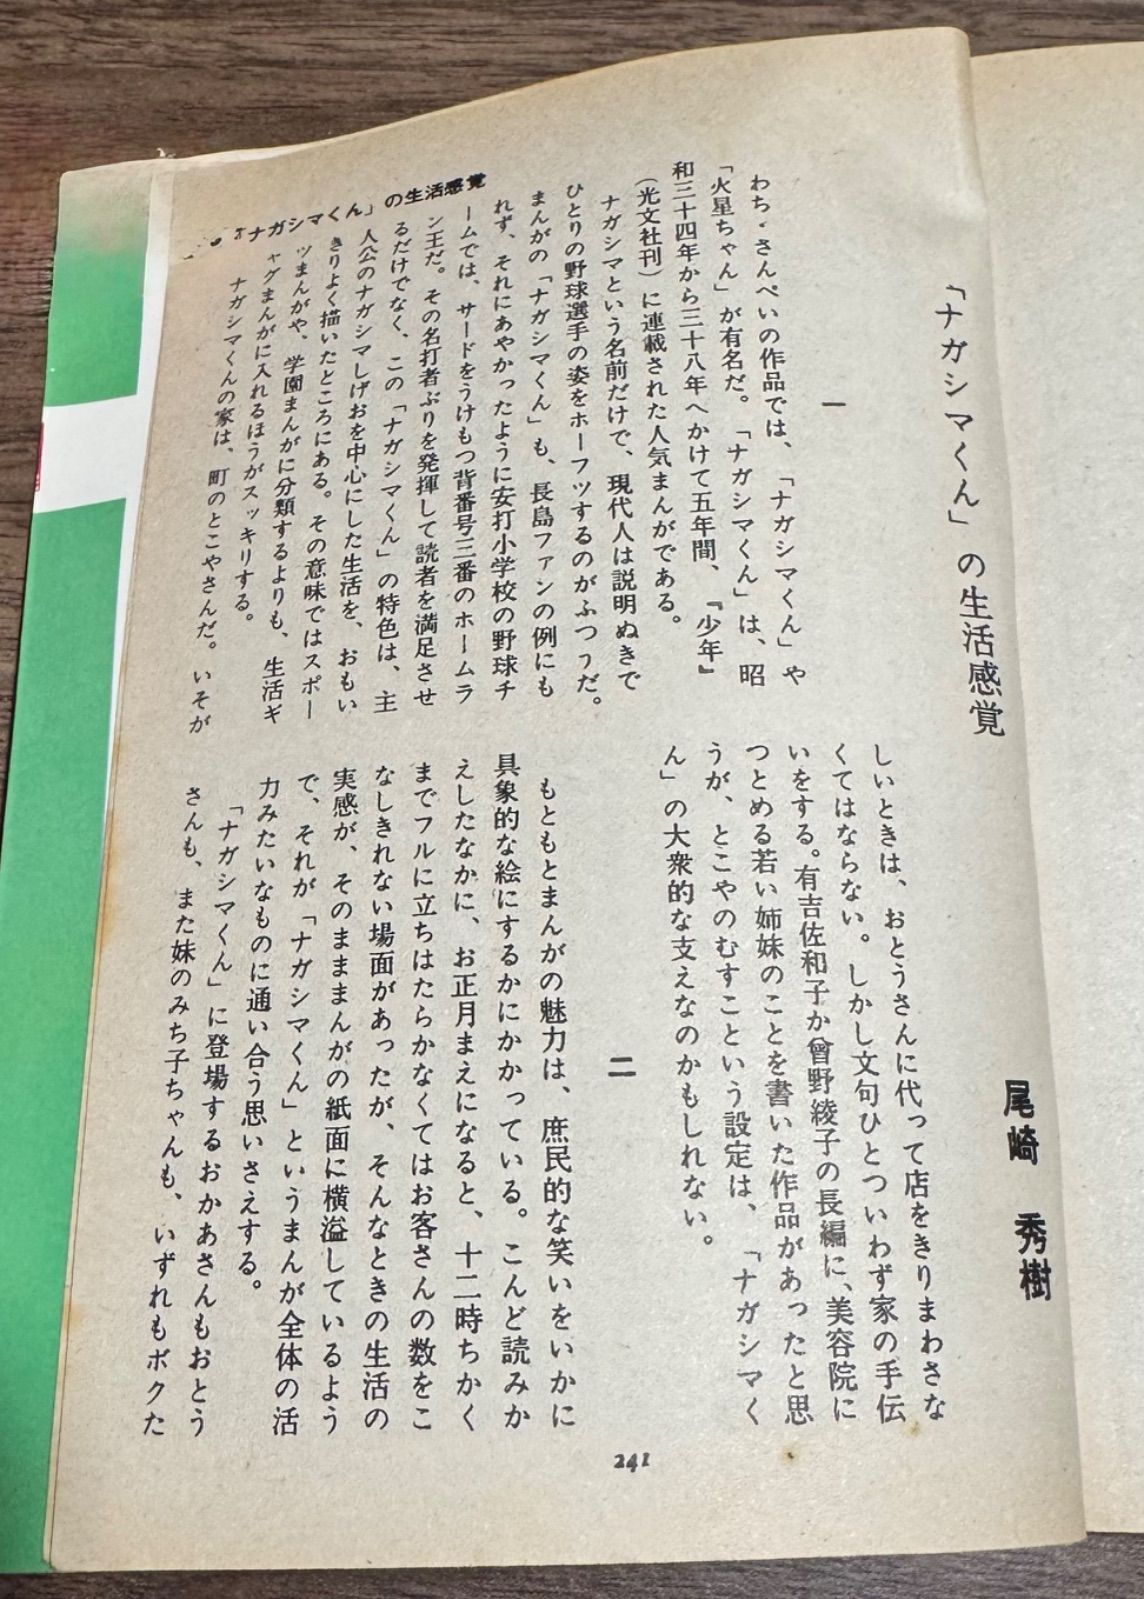 「ナガシマくん」の生活感覚
尾崎 秀樹
一
わち・さんぺいの作品では、「ナガシマくん」や
「火星ちゃん」が有名だ。「ナガシマくん」は、昭
和三十四年から三十八年へかけて五年間、『少年』
(光文社刊)に連載された人気まんがである。
ナガシマという名前だけで、現代人は説明ぬきで
ひとりの野球選手の姿をホーフツするのがふつうだ。
まんがの「ナガシマくん」も、長島ファンの例にも
れず、それにあやかったように安打小学校の野球チ
ームでは、サードをうけもつ背番号三番のホームラ
ン王だ。その名打者ぶりを発揮して読者を満足させ
るだけでなく、この「ナガシマくん」の特色は、主
人公のナガシマしげおを中心にした生活を、おもい
きりよく描いたところにある。その意味ではスポー
ツまんがや、学園まんがに分類するよりも、生活ギ
ャグまんがに入れるほうがスッキリする。
ナガシマくんの家は、町のとこやさんだ。いそが
しいときは、おとうさんに代って店をきりまわさな
くてはならない。しかし文句ひとついわず家の手伝
いをする。有吉佐和子か曾野綾子の長編に、美容院に
つとめる若い姉妹のことを書いた作品があったと思
うが、とこやのむすこという設定は、「ナガシマく
ん」の大衆的な支えなのかもしれない。
二
もともとまんがの魅力は、庶民的な笑いをいかに
具象的な絵にするかにかかっている。こんど読みか
えしたなかに、お正月まえになると、十二時ちかく
までフルに立ちはたらかなくてはお客さんの数をこ
なしきれない場面があったが、そんなときの生活の
実感が、そのまままんがの紙面に横溢しているよう
で、それが「ナガシマくん」というまんが全体の活
力みたいなものに通い合う思いさえする。
「ナガシマくん」に登場するおかあさんもおとう
さんも、また妹のみち子ちゃんも、いずれもボクた
「ナガシマくん」の生活感覚
241